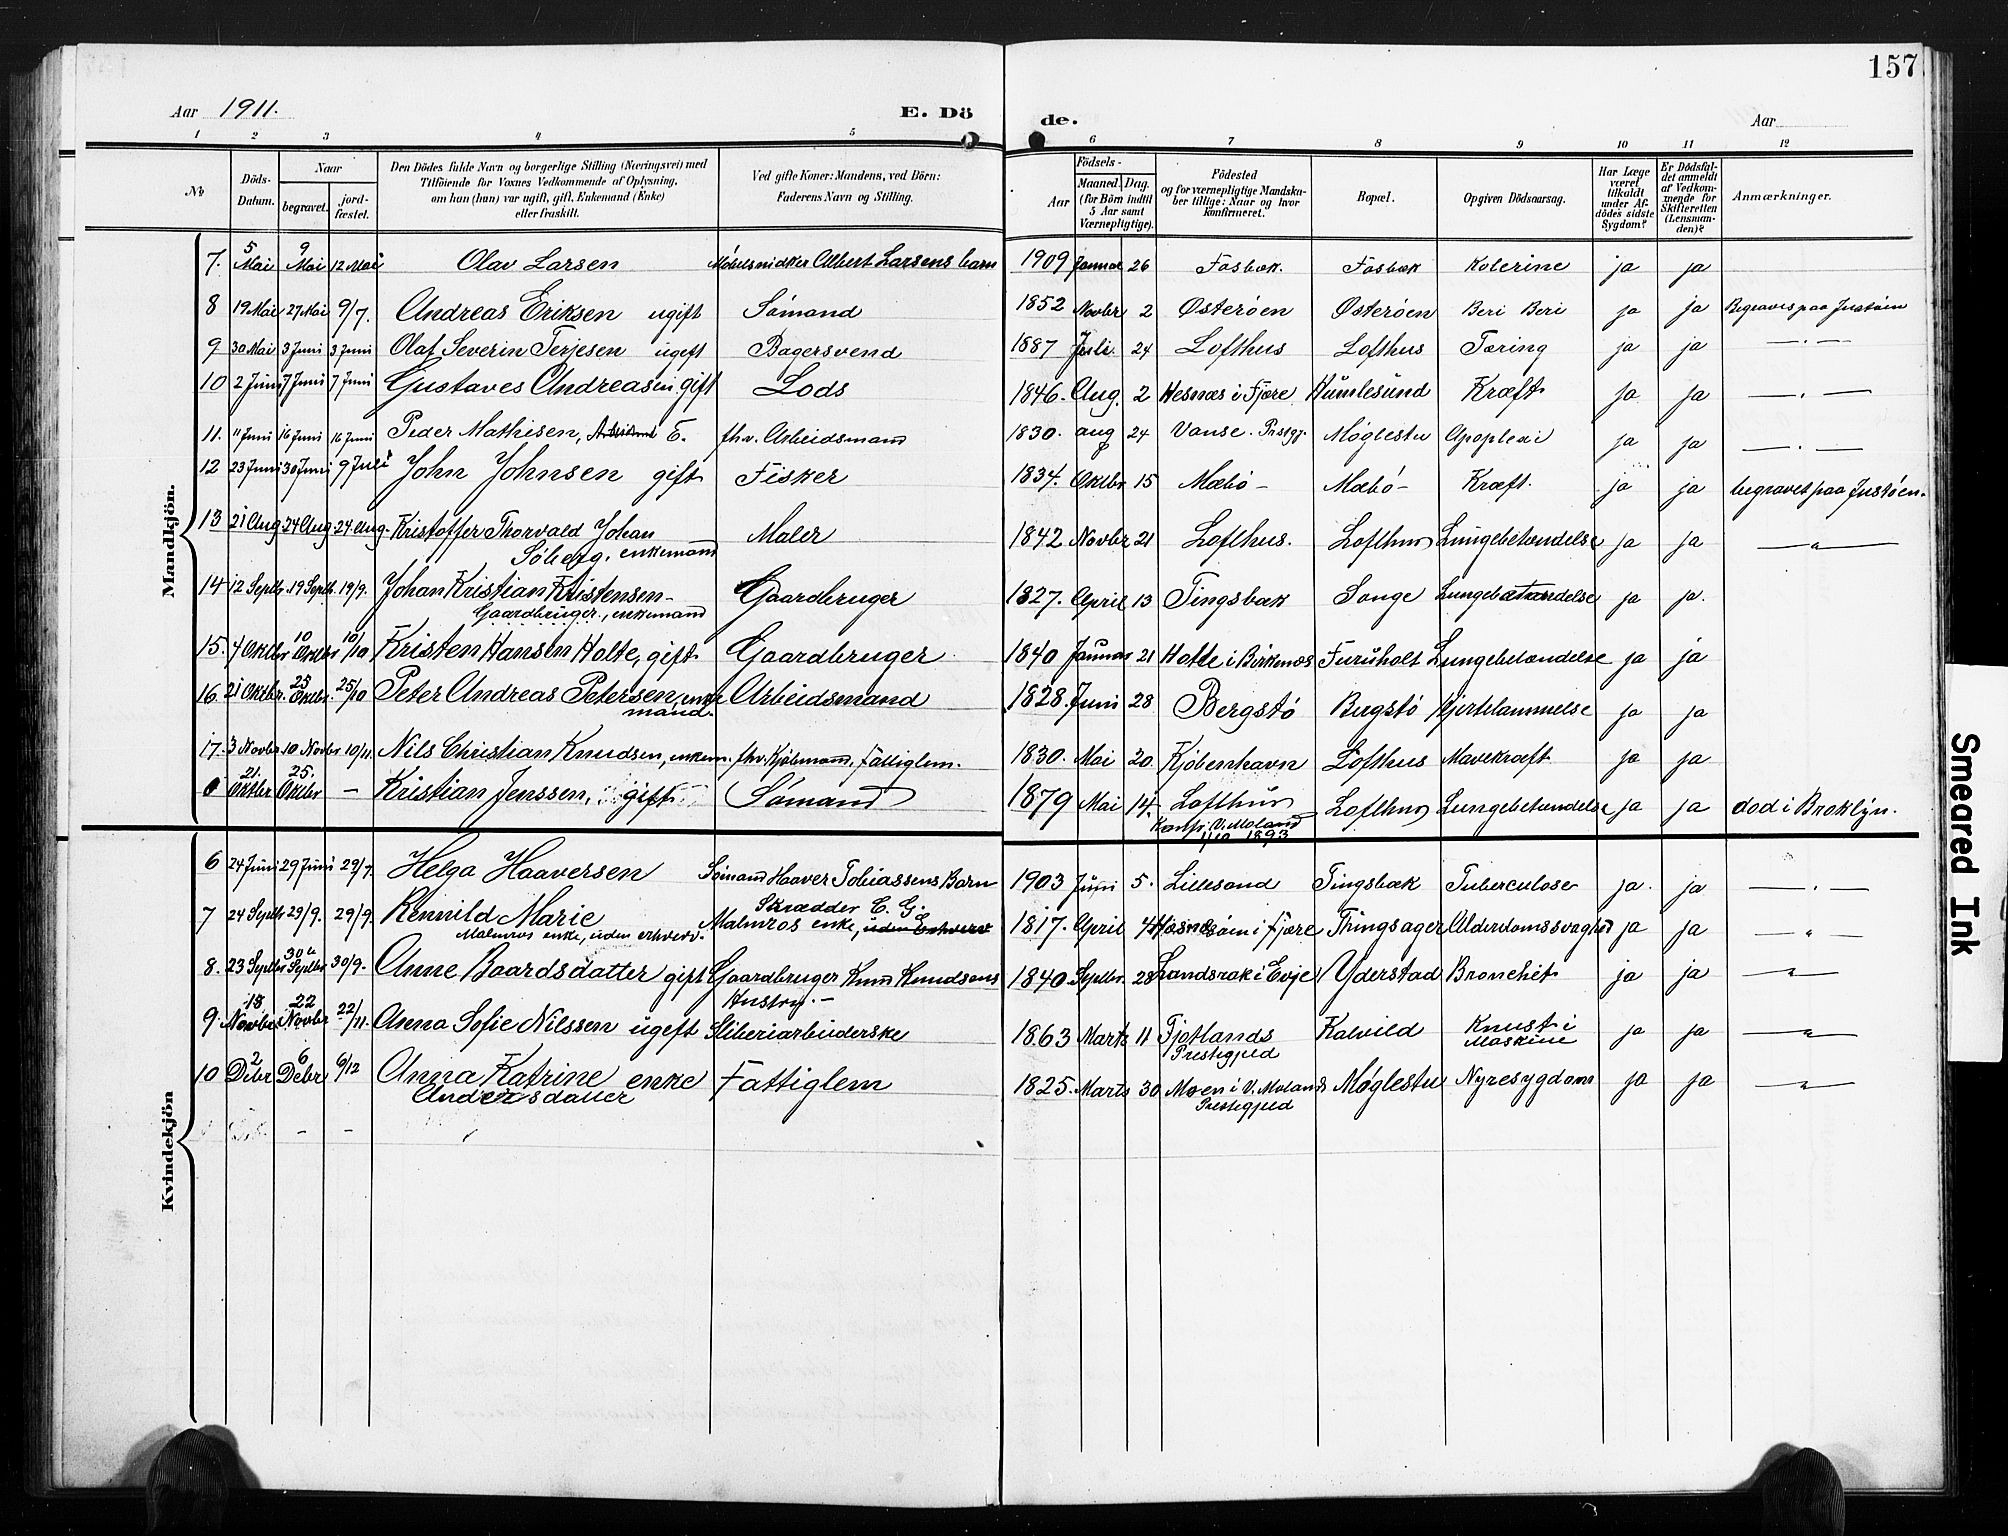 157
Aar 1911. E. Dö de. Aar
1 2 3 4 5 6 7 8 9 10 11 12
No Döds-Datum. Naar begravet. jord-fæstet. Den Dödes fulde Navn og borgerlige Stilling (Næringsvei) med Tilföiende for Voxnes Vedkommende af Oplysning, om han (hun) var ugift, gift, Enkemand (Enke) eller fraskilt. Ved gifte Koner: Mandens, ved Börn: Faderens Navn og Stilling. Födsels- Aar Maaned. Dag. (for Börn indtil 5 Aar samt Værnepligtige). Födested og for værnepligtige Mandska-ber tillige: Naar og hvor konfirmeret. Bopæl. Opgiven Dödsaarsag. Har Læge været tilkaldt under Af-dödes sidste Sygdom? Er Dödsfal-det anmeldt af Vedkom-mende for Skifteretten (Lensman-den)? Anmærkninger.
Mandkjön.
7. 5 Mai 9 Mai 12 Mai Olav Larsen Móbelsnidker Albert Larsens barn 1909 Januar 26 Fosbæk. Fosbæk Kolerine ja ja
8 19 Mai 27 Mai 9/7. Andreas Eriksen ugift Sømand 1852 Novbr 2 Østerøen Østerøen Beri Beri ja ja Begraves paa Justøen
9 30 Mai 3 Juni 3 Juni Olaf Severin Terjesen ugift Bagersvend 1887 Juli. 24 Lofthus Lofthus Tæring ja ja — . —
10 2 Juni 7 Juni 7 Juni Gustaves Andreasen gift Lods 1846. Aug. 2 Hesnæs i Fjære Humlesund Kræft ja ja — . —
11. 11 Juni 16 Juni 16 Juni Peder Mathisen, E. fhv. Arbeidsmand 1830. aug 24 Vanse. Prstgj. Møglestu Apoplexi ja ja — . —
12 23 Juni 30 Juni 9 Juli John Johnsen gift Fisker 1834. Oktbr 15 Mæbø - Mæbø - Kræft. ja ja begravet paa Justøen.
13 21 Aug 24 Aug 24. aug. Kristoffer Thorvald Johan Maler 1842 Novbr 21 Lofthus. Lofthus Lungebetændelse ja ja — " —
Söberg, enkemand
14 12 Septbr. 19 Septb. 19/9. Johan Kristian Kristensen - Gaardbruger 1827. April 13 Tingsbæk Songe Lungebetændelse ja ja.
Gaardbruger., enkemand
15. 4 Oktbr 10 Oktbr 10/10 Kristen Hansen Holte, gift Gaardbruger 1840 Januar 21 Holte i Birkenæs Furuholt Lungebetændelse ja ja
16. 21 Oktbr. 25 Oktbr. 25/10 Peter Andreas Petersen, enke Arbeidsmand 1828. Juni 28 Bergstó Bergstó Hjertelammelse ja ja
mand.
17. 3 Novbr 10 Novbr 10/11. Nils Christian Knudsen, enkem. fhv. Kjøbmand, fattiglem. 1830. Mai 20. Kjöbenhavn Lofthus Mavekræft ja ja
0 21. Oktbr 25. Oktbr — Kristian Jenssen, gift Sømand 1879 Mai 14. Lofthus Lofthus Lungebetændelse ja ja dod i Broklyn.
Konfir. V. Moland 1/10 1893
Kvindekjön
6 24 Juni 29 Juni 29/7. Helga Haaversen Sömand Haaver Tobiassens Barn 1903 Juni 5. Lillesand Tingsbæk Tuberculose ja. ja — . —
7 24 Septbr 29/9. 29/9. Renvild Marie Skrædder C. G. Malmros enke, uden Erhverv 1817. April 4 i Fjære Thingsager Alderdomssvaghed ja ja — " —
Malmros enke, uden erhverv.
8. 23 Septbr 30 Septbr 30/9. Anne Baardsdatter gift Gaardbruger Knud Knudsens 1840. Septbr. 28 Landsrak i Evje Yderstad Bronchit ja ja — " —
Hustru. -
9. 18 Novbr 22 Novbr 22/11. Anna Sofie Nilssen ugeft Sliberiarbeiderske 1863 Marts 11 Fjotlands Kalvild Knust i ja ja — " —
Prestegjeld Maskine
10 2 Debr 6 Debr 6/12 Anna Katrine enke Fattiglem 1825. Marts 30 Moen i V. Molands Møglestu Nyresygdom ja ja — " —
Andersdatter Prestegjeld
— —
Smeared Ink